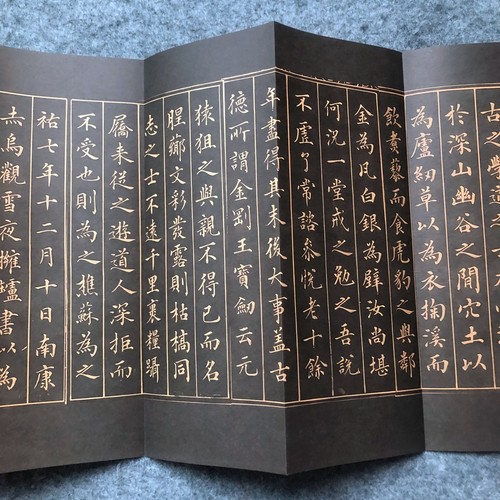 古之學道之
於深山幽谷之間穴土以
為廬紉草以為衣掬溪而
飲煮藜而食虎豹之與鄰
金為瓦白銀為壁汝尚堪
何況一堂戒之勉之吾說
不虛了常諮參悅老十餘
年盡得其末後大事蓋古
德所謂金剛王寶劍云元
猿狙之與親不得已而名
腥薌文彩發露則枯槁同
志之士不遠千里裹糧躡
屩來從之遊道人深拒而
不受也則為之樵蘇為之
祐七年十二月十日南康
赤烏觀雪夜擁爐書以為